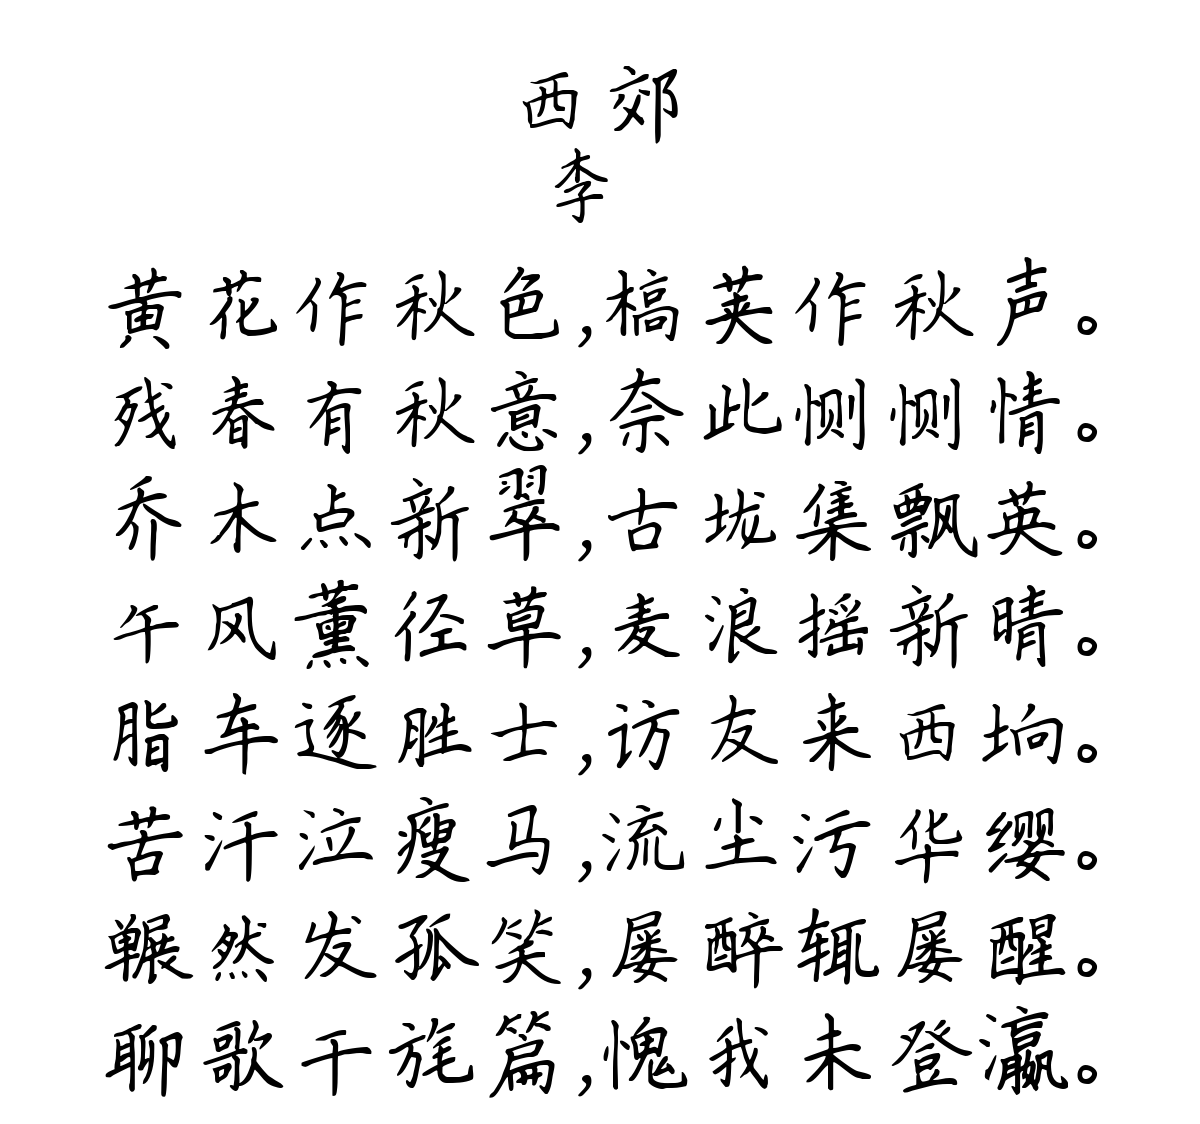 西郊
李
黄花作秋色,槁荚作秋声。
残春有秋意,奈此恻恻情。
乔木点新翠,古垅集飘英。
午风薰径草,麦浪摇新晴。
脂车逐胜士,访友来西坰。
苦汗泣瘦马,流尘污华缨。
冁然发孤笑,屡醉辄屡醒。
聊歌干旄篇,愧我未登瀛。